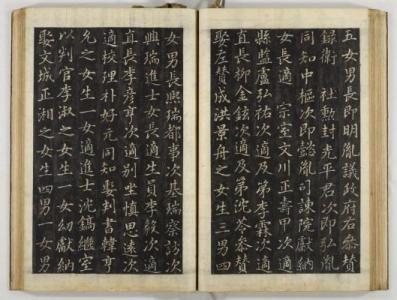 五女男長即明胤議政府右參贊
錄衛社勲封光平君次即弘胤
同知中樞次即懿胤司諫院獻納
女長適宗室文川正壽甲次適
縣監盧弘祐次適及第李霖次適
直長柳金鉉次適及第沈苓參贊
娶左贊成洪景舟之女生三男四
女男長興瑞都事次基瑞察訪次
興瑞進士女長適生員李毅次適
直長李彦亨次適別坐慎思遠次
適校理朴好元同知娶判書韓亨
允之女生一女適進士沈鎬繼室
以判官李淑之女生一女幼獻納
娶文城正湘之女生四男一女男